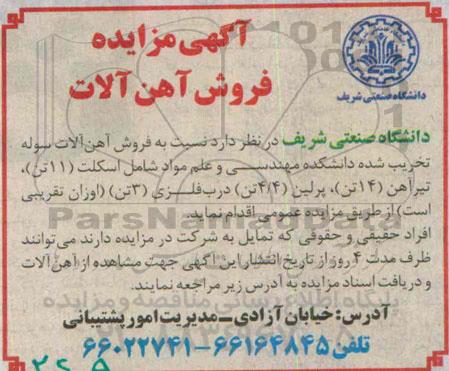 آگهی مزایده
فروش آهن آلات
دانشگاه صنعتی شریف
دانشگاه صنعتی شریف در نظر دارد نسبت به فروش آهن آلات سوله
تخریب شده دانشکده مهندسی و علم مواد شامل اسکلت (۱۱تن)،
تیرآهن (۱۴تن)، پرلین (۴/۴تن) درب فلزی (۳تن) (اوزان تقریبی
است) از طریق مزایده عمومی اقدام نماید.
افراد حقیقی و حقوقی که تمایل به شرکت در مزایده دارند می‌توانند
ظرف مدت ۴ روز از تاریخ انتشار این آگهی جهت مشاهده از آهن آلات
و دریافت اسناد مزایده به آدرس زیر مراجعه نمایند.
آدرس: خیابان آزادی ـ مدیریت امور پشتیبانی
تلفن ۶۶۱۶۴۸۴۵-۶۶۰۲۲۷۴۱
ParsNamadData
پایگاه اطلاع رسانی مناقصه و مزایده